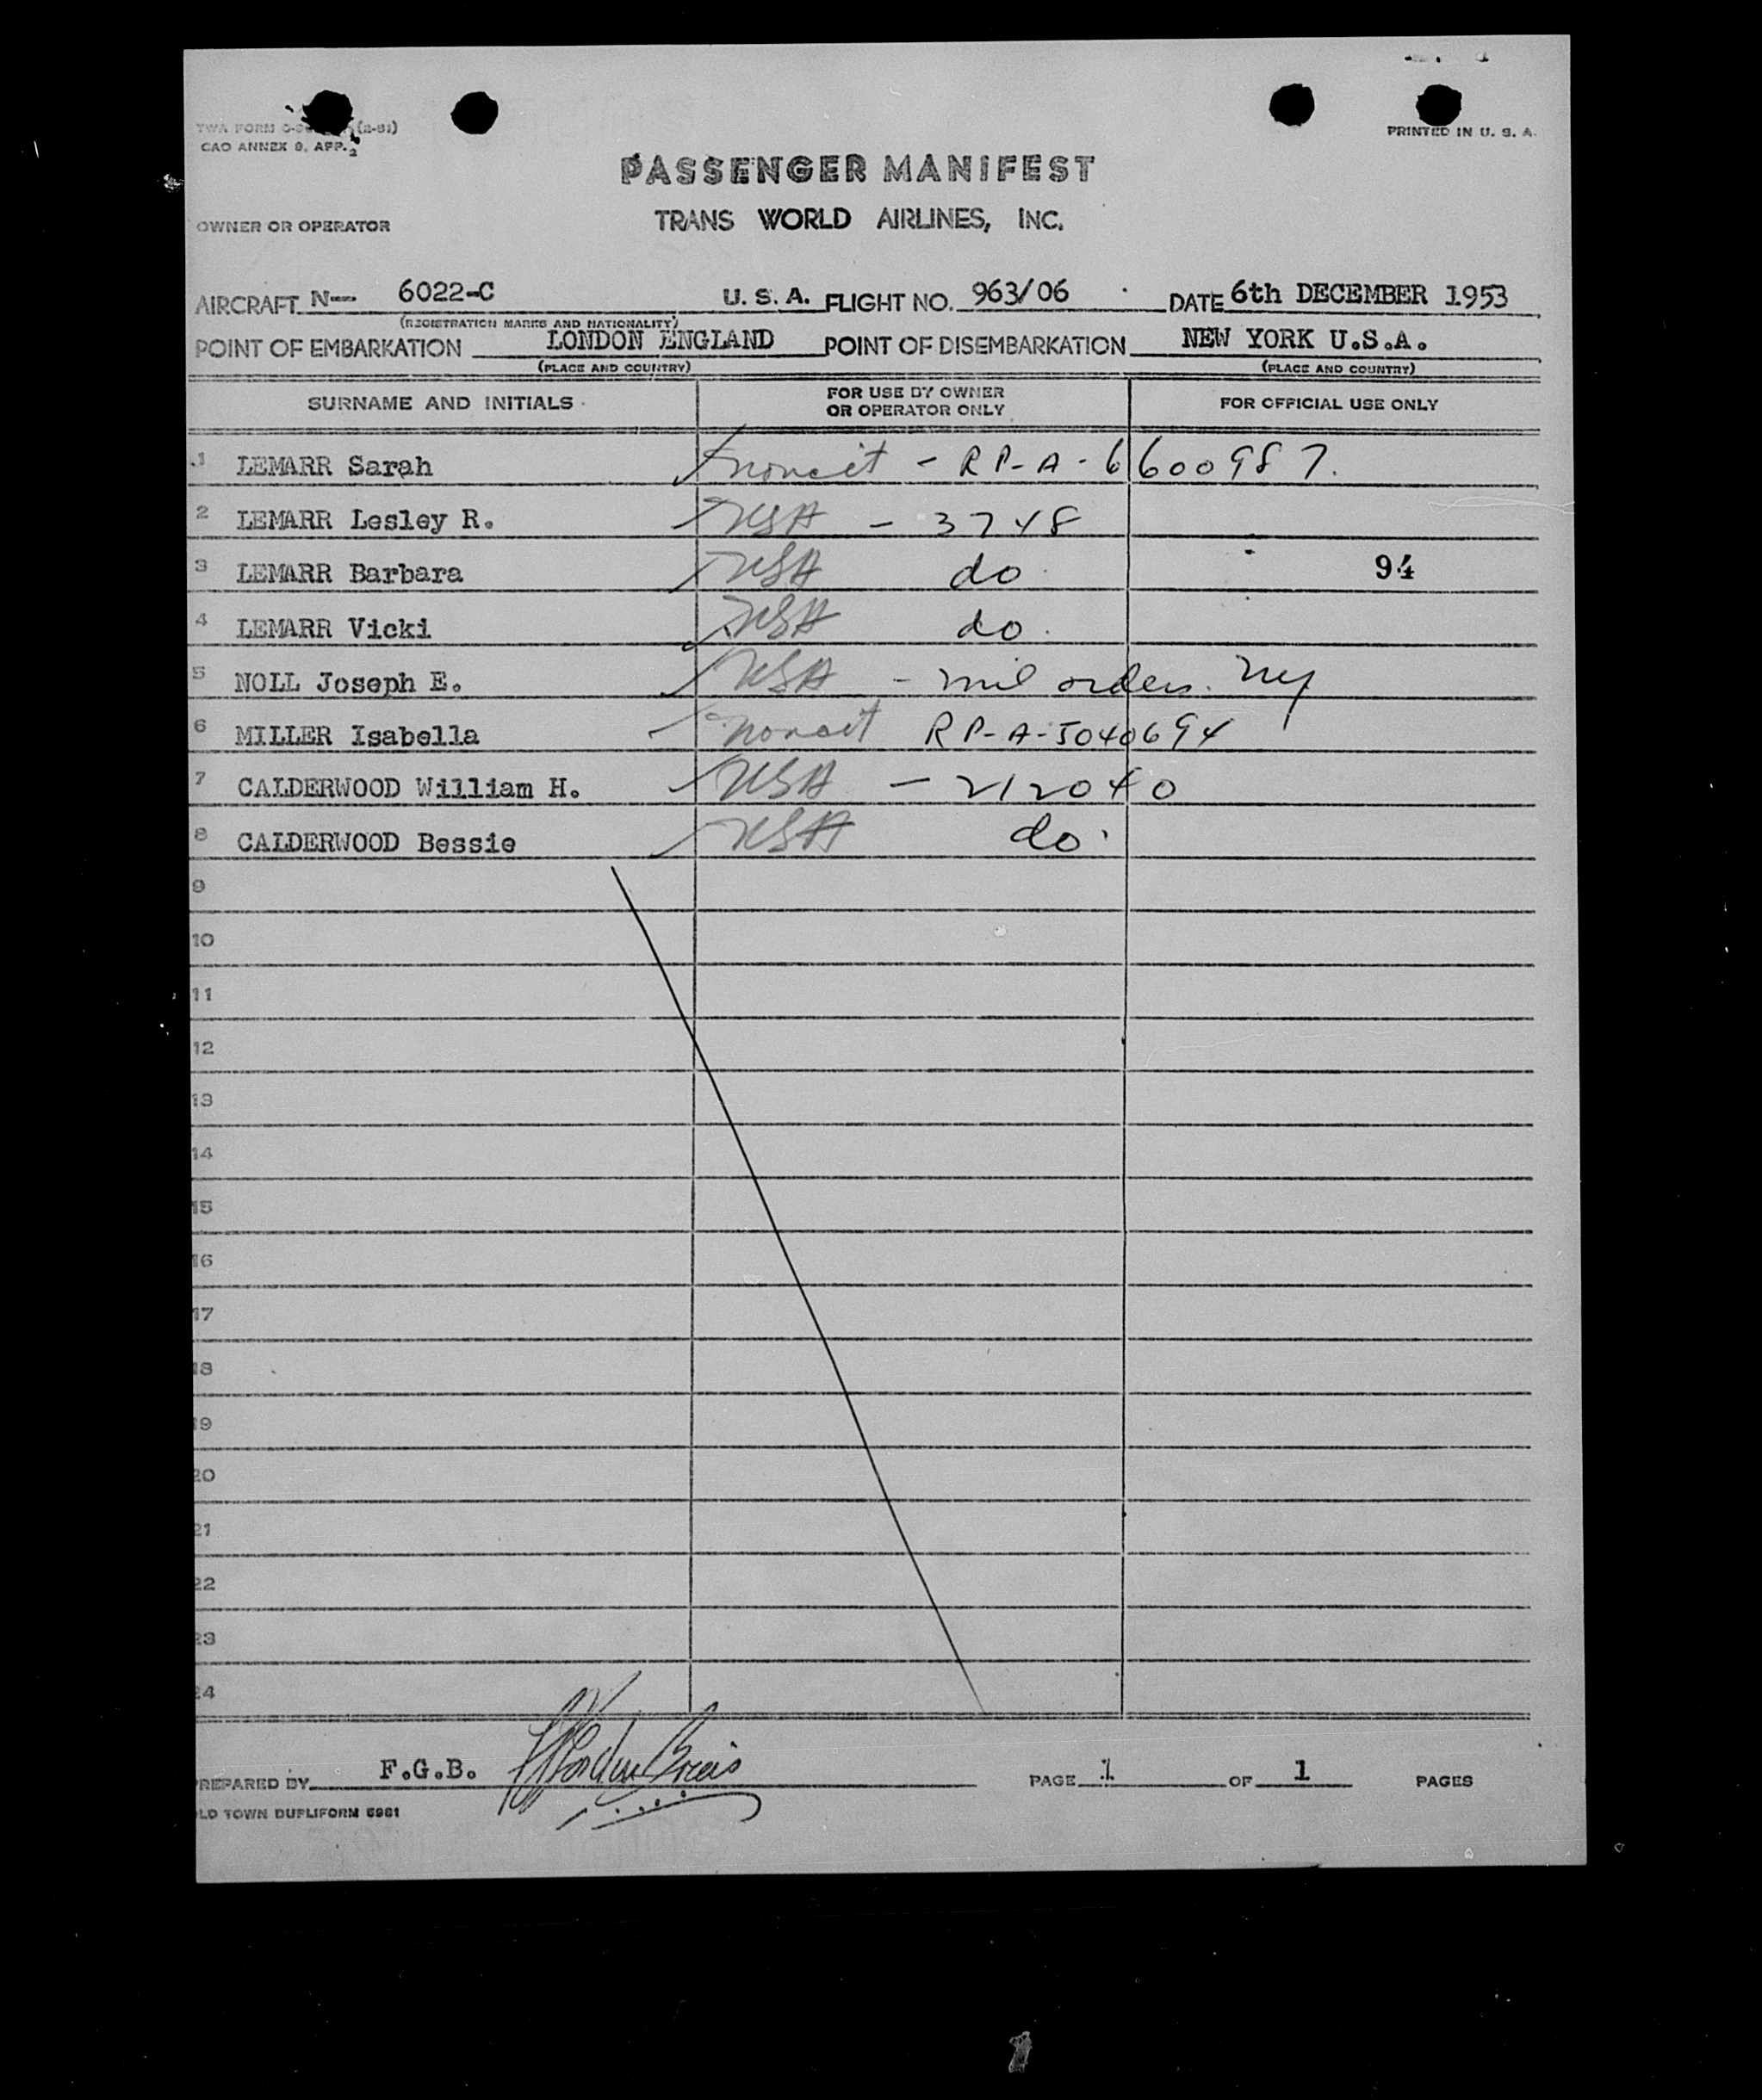 TWA FORM (2-51)
CAO ANNEX 9, APP. 2
PRINTED IN U. S. A.
PASSENGER MANIFEST
TRANS WORLD AIRLINES, INC.
OWNER OR OPERATOR
AIRCRAFT N-- 6022-C U. S. A. FLIGHT NO. 963/06 DATE 6th DECEMBER 1953
(REGISTRATION MARKS AND NATIONALITY)
POINT OF EMBARKATION LONDON ENGLAND POINT OF DISEMBARKATION NEW YORK U.S.A.
(PLACE AND COUNTRY) (PLACE AND COUNTRY)
SURNAME AND INITIALS FOR USE BY OWNER OR OPERATOR ONLY FOR OFFICIAL USE ONLY
1 LEMARR Sarah noncit - RP-A-6600987.
2 LEMARR Lesley R. USA - 3748
3 LEMARR Barbara USA do 94
4 LEMARR Vicki USA do.
5 NOLL Joseph E. USA - mil orders. NY
6 MILLER Isabella noncit RP-A-5040694
7 CALDERWOOD William H. USA - 212040
8 CALDERWOOD Bessie USA do
9
10
11
12
13
14
15
16
17
18
19
20
21
22
23
24
PREPARED BY F.G.B. PAGE 1 OF 1 PAGES
OLD TOWN DUPLIFORM 6981
1